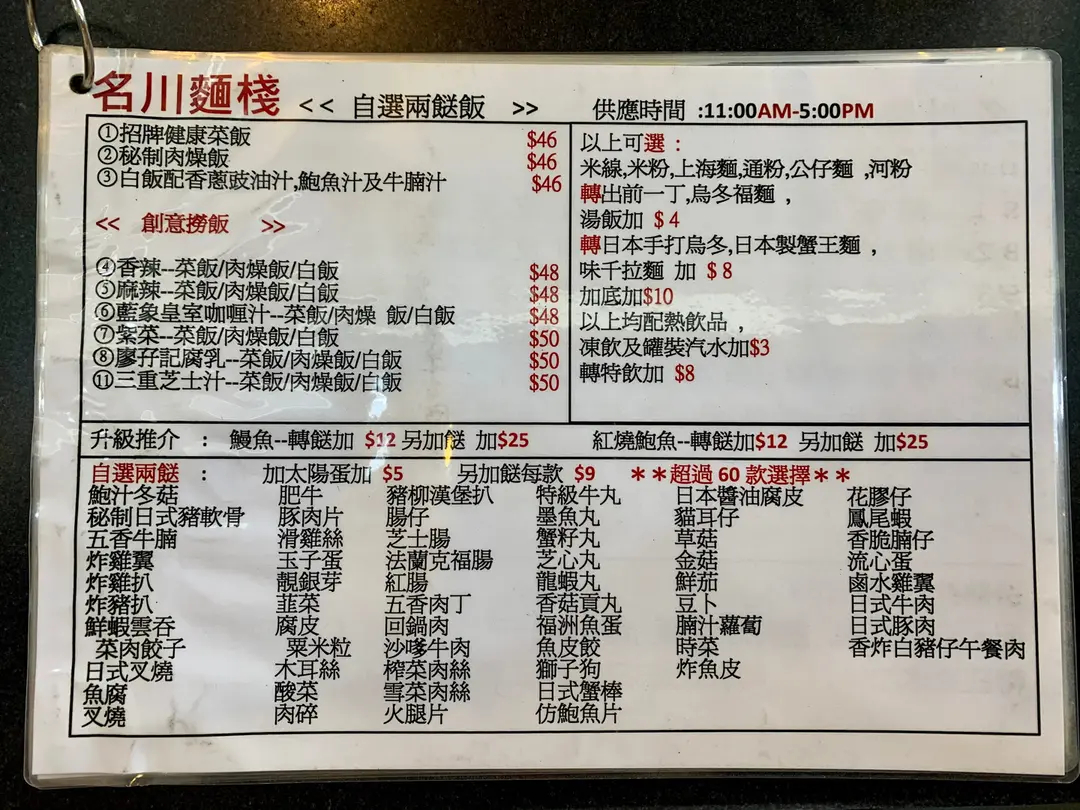 名川麵棧 << 自選兩餸飯 >> 供應時間 :11:00AM-5:00PM
①招牌健康菜飯 $46
②秘制肉燥飯 $46
③白飯配香蔥豉油汁,鮑魚汁及牛腩汁 $46
<< 創意撈飯 >>
④香辣--菜飯/肉燥飯/白飯 $48
⑤麻辣--菜飯/肉燥飯/白飯 $48
⑥藍象皇室咖喱汁--菜飯/肉燥 飯/白飯 $48
⑦紫菜--菜飯/肉燥飯/白飯 $50
⑧廖孖記腐乳--菜飯/肉燥飯/白飯 $50
⑪三重芝士汁--菜飯/肉燥飯/白飯 $50
以上可選 :
米線,米粉,上海麵,通粉,公仔麵 ,河粉
轉出前一丁,烏冬福麵 ,
湯飯加 $4
轉日本手打烏冬,日本製蟹王麵 ,
味千拉麵 加 $8
加底加$10
以上均配熱飲品 ,
凍飲及罐裝汽水加$3
轉特飲加 $8
升級推介 : 鰻魚--轉餸加 $12 另加餸 加$25 紅燒鮑魚--轉餸加$12 另加餸 加$25
自選兩餸 : 加太陽蛋加 $5 另加餸每款 $9 **超過 60 款選擇**
鮑汁冬菇 肥牛 豬柳漢堡扒 特級牛丸 日本醬油腐皮 花膠仔
秘制日式豬軟骨 豚肉片 腸仔 墨魚丸 貓耳仔 鳳尾蝦
五香牛腩 滑雞絲 芝士腸 蟹籽丸 草菇 香脆腩仔
炸雞翼 玉子蛋 法蘭克福腸 芝心丸 金菇 流心蛋
炸雞扒 靚銀芽 紅腸 龍蝦丸 鮮茄 鹵水雞翼
炸豬扒 韮菜 五香肉丁 香菇貢丸 豆卜 日式牛肉
鮮蝦雲吞 腐皮 回鍋肉 福洲魚蛋 腩汁蘿蔔 日式豚肉
菜肉餃子 粟米粒 沙嗲牛肉 魚皮餃 時菜 香炸白豬仔午餐肉
日式叉燒 木耳絲 榨菜肉絲 獅子狗 炸魚皮
魚腐 酸菜 雪菜肉絲 日式蟹棒
叉燒 肉碎 火腿片 仿鮑魚片